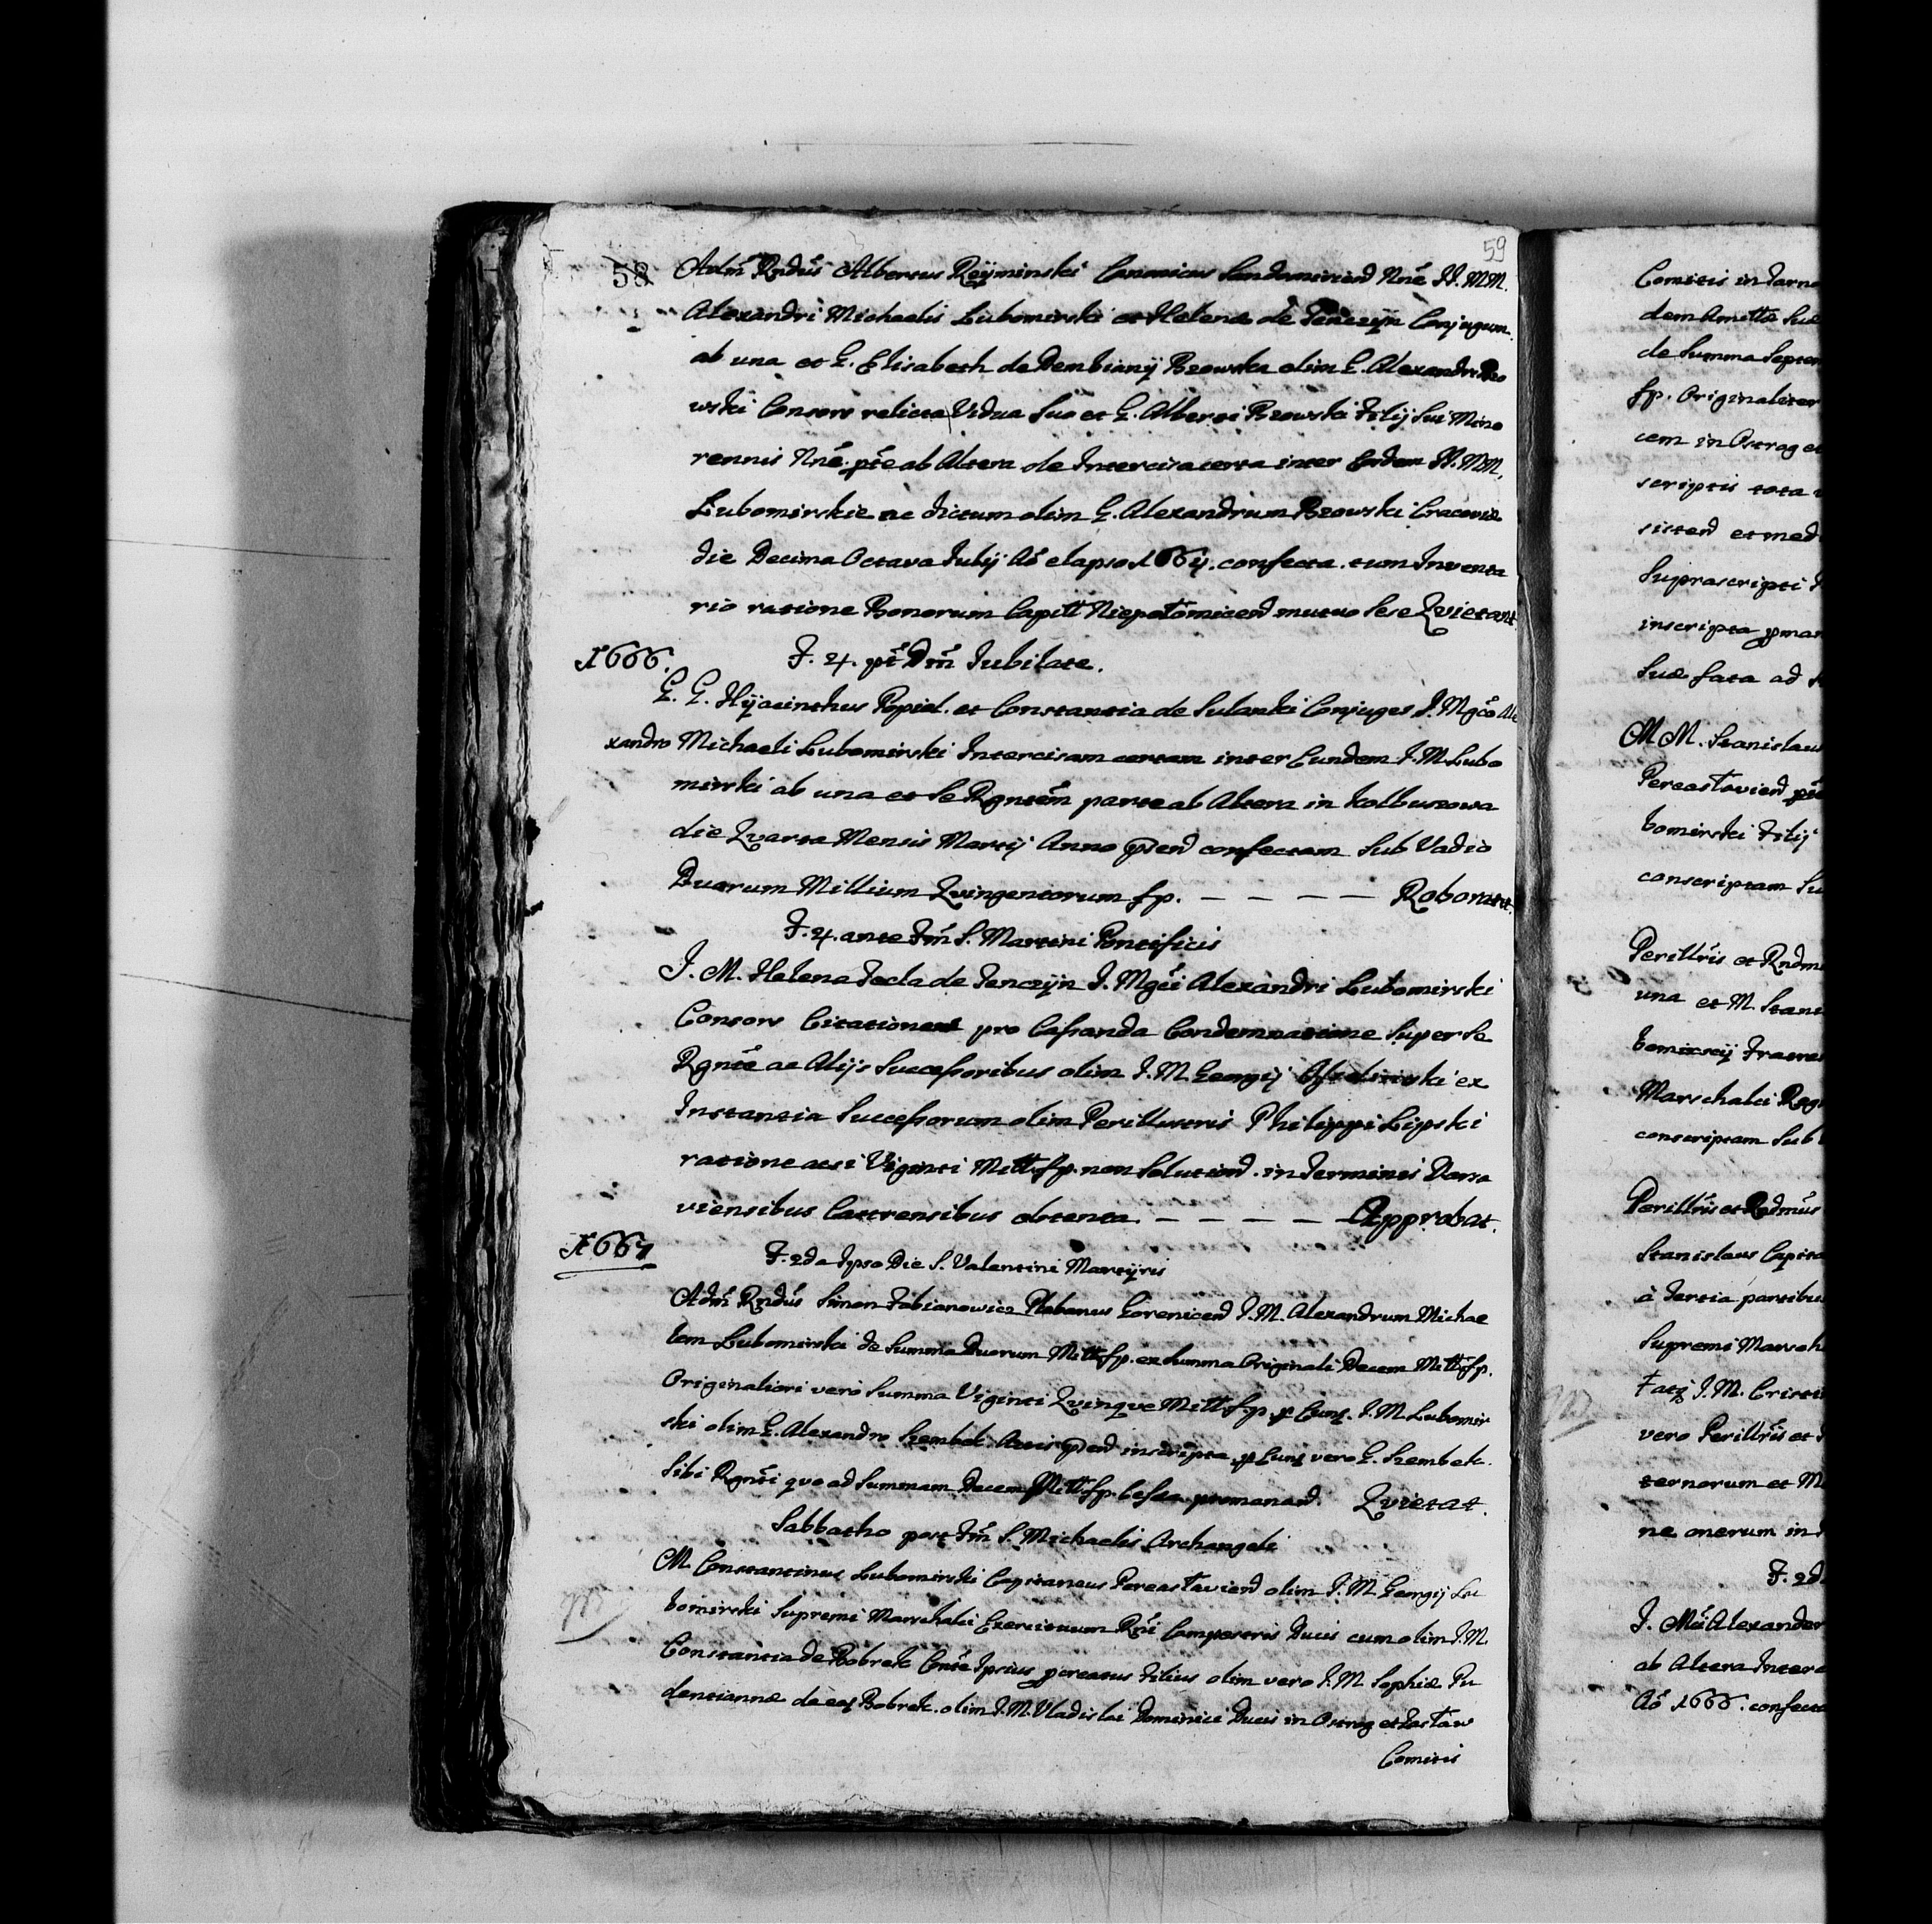 59
58 Adm Rndus Albertus Reyminski Canonicus Sandomiriend Nne II. MM.
Alexandri Michaelis Lubomirski et Helenæ de Tenczyn Conjugum
ab una et G. Elisabeth de Dembiany Bzowska olim G. Alexandri Bzo
wski Consors relicta Vidua suo et G. Alberti Bzowski Filij sui Mino
rennis Nne. pte ab Altera de Intercisa certa inter Eosdem II. MM.
Lubomirskie ac dictum olim G. Alexandrum Bzowski Cracoviæ
die Decima Octava Julij Ao elapso confecta. tum Inventa
rio ratione Bonorum Capitt Niepołomicend mutuo sese Qvietant.
1666. F. 4. pt Dm Jubilate.
G. G. Hyacinthus Popiel. et Constantia de Sulanki Conjuges I. Mgco Ale
xandro Michaeli Lubomirski Intercisam certam inter Eundem I. M. Lubo
mirski ab una et se Rgntem parte ab Altera in Kolbuszowa
die Qvarta Mensis Martij Anno pnd confectam sub Vadio
Duorum Millium Qvingentorum fp. — — — — Roborant.
F. 4. ante Fm S. Martini Pontificis
I. M. Helena Tecla de Tenczyn I. Mgci Alexandri Lubomirski
Consors Citationem pro Cassanda Condemnatione super se
Rgnte ac Alijs Successoribus olim I. M. Georgij ex
Instantia Successorum olim Perillustris Philippi Lipski
ratione Viginti Mill. fp. non solutiond. in Terminis Varsa
viensibus Castrensibus obtenta — — — — Approbat.
1667 F. 2da Ipso Die S. Valentini Martyris
Adm Rndus Simon Fabianowicz Plebanus Gorenicend I. M. Alexandrum Michae
lem Lubomirski de Summa Duorum Mill. fp. ex Summa Originali Decem Mill fp.
Originaliori vero Summa Viginti Qvinqve Mill. fp. p Eund. I. M. Lubomir
ski olim G. Alexandro Szembek Actis pnd inscripta p Eund vero G. Szembek.
sibi Rgnti qvo ad Summam Decem Mill. fp. pomanand. Qvietat.
Sabbatho post Fm S. Michaelis Archangeli
M. Constantinus Lubomirski Capitaneus Pereasłaviend olim I. M. Georgij Lu
bomirski Supremi Marschalci Exercituum Rni Campestris Ducis cum olim I. M.
Constantia de Bobrek Conte Ipsius procreatus Filius olim vero I. M. Sophiæ Pu
dentiannæ de ead Bobrek. olim I. M. Vladislai Dominici Ducis in Ostrog et Zasław
Comitis
Comitis in Tarno
dem Amittæ suæ
de Summa Septem
fp. Originaliter
cem in Ostrog et
scriptis tota
sistend et med
suprascripti
inscripta pman
suæ fata ad
M M. Stanislaus
Pereasłaviend pte
bomirski Filij
conscriptam su
Perillris et Rndm
una et M. Stani
bomirscij Fratres
Marschalci Regn
conscriptam sub
Perillris et Rndmus
Stanislaus Capita
à Tertia partibus
Supremi Marsch
I. M. Cristi
vero Perillris et
ternorum et M
ne onerum in
F. 2d
I. Mci Alexander
ab Altera Interc
Ao 1666. confecta